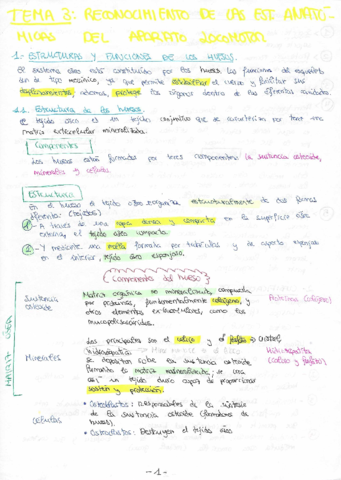 TEMA 3: RECONOCIMIENTO DE LAS EST. ANATÓ-
MICAS DEL APARATO LOCOMOTOR
1.- ESTRUCTURAS Y FUNCIONES DE LOS HUESOS.
El sistema óseo está constituido por los huesos. Las funciones del esqueleto
son de tipo mecánico, ya que permite el cuerpo y facilitar sus
desplazamientos, además, protege los órganos dentro de las diferentes cavidades.
1.1. Estructura de los huesos.
El tejido óseo es un tejido conjuntivo que se caracteriza por tener una
matriz extracelular mineralizada.
Componentes
Los huesos están formados por tres componentes: la sustancia osteoide,
minerales y células.
Estructura
En el hueso el tejido óseo organiza estructuralmente de dos formas
(tejidos)
1 - A través de una capa densa y compacta en la superficie ósea
externa, el tejido óseo compacto.
2 - Y mediante una malla formada por trabéculas y de aspecto esponjoso
en el interior, tejido óseo esponjoso.
Componentes del hueso
MATRIZ ÓSEA
Sustancia osteoide
Matriz orgánica no mineralizada compuesta
por proteínas, fundamentalmente colágeno, y
otros elementos extracelulares, como los
mucopolisacáridos.
Proteína (colágeno)
Minerales
Los principales son el calcio y el fósforo
hidroxiapatita
se depositan sobre la sustancia osteoide
formando la matriz, se crea
así un tejido duro capaz de proporcionar
sostén y protección.
Hidroxiapatita
(calcio y fósforo)
Células
• Osteoblastos: Responsables de la síntesis
de la sustancia osteoide (formadoras de
hueso).
• Osteoclastos: Destruyen el tejido óseo
-1-